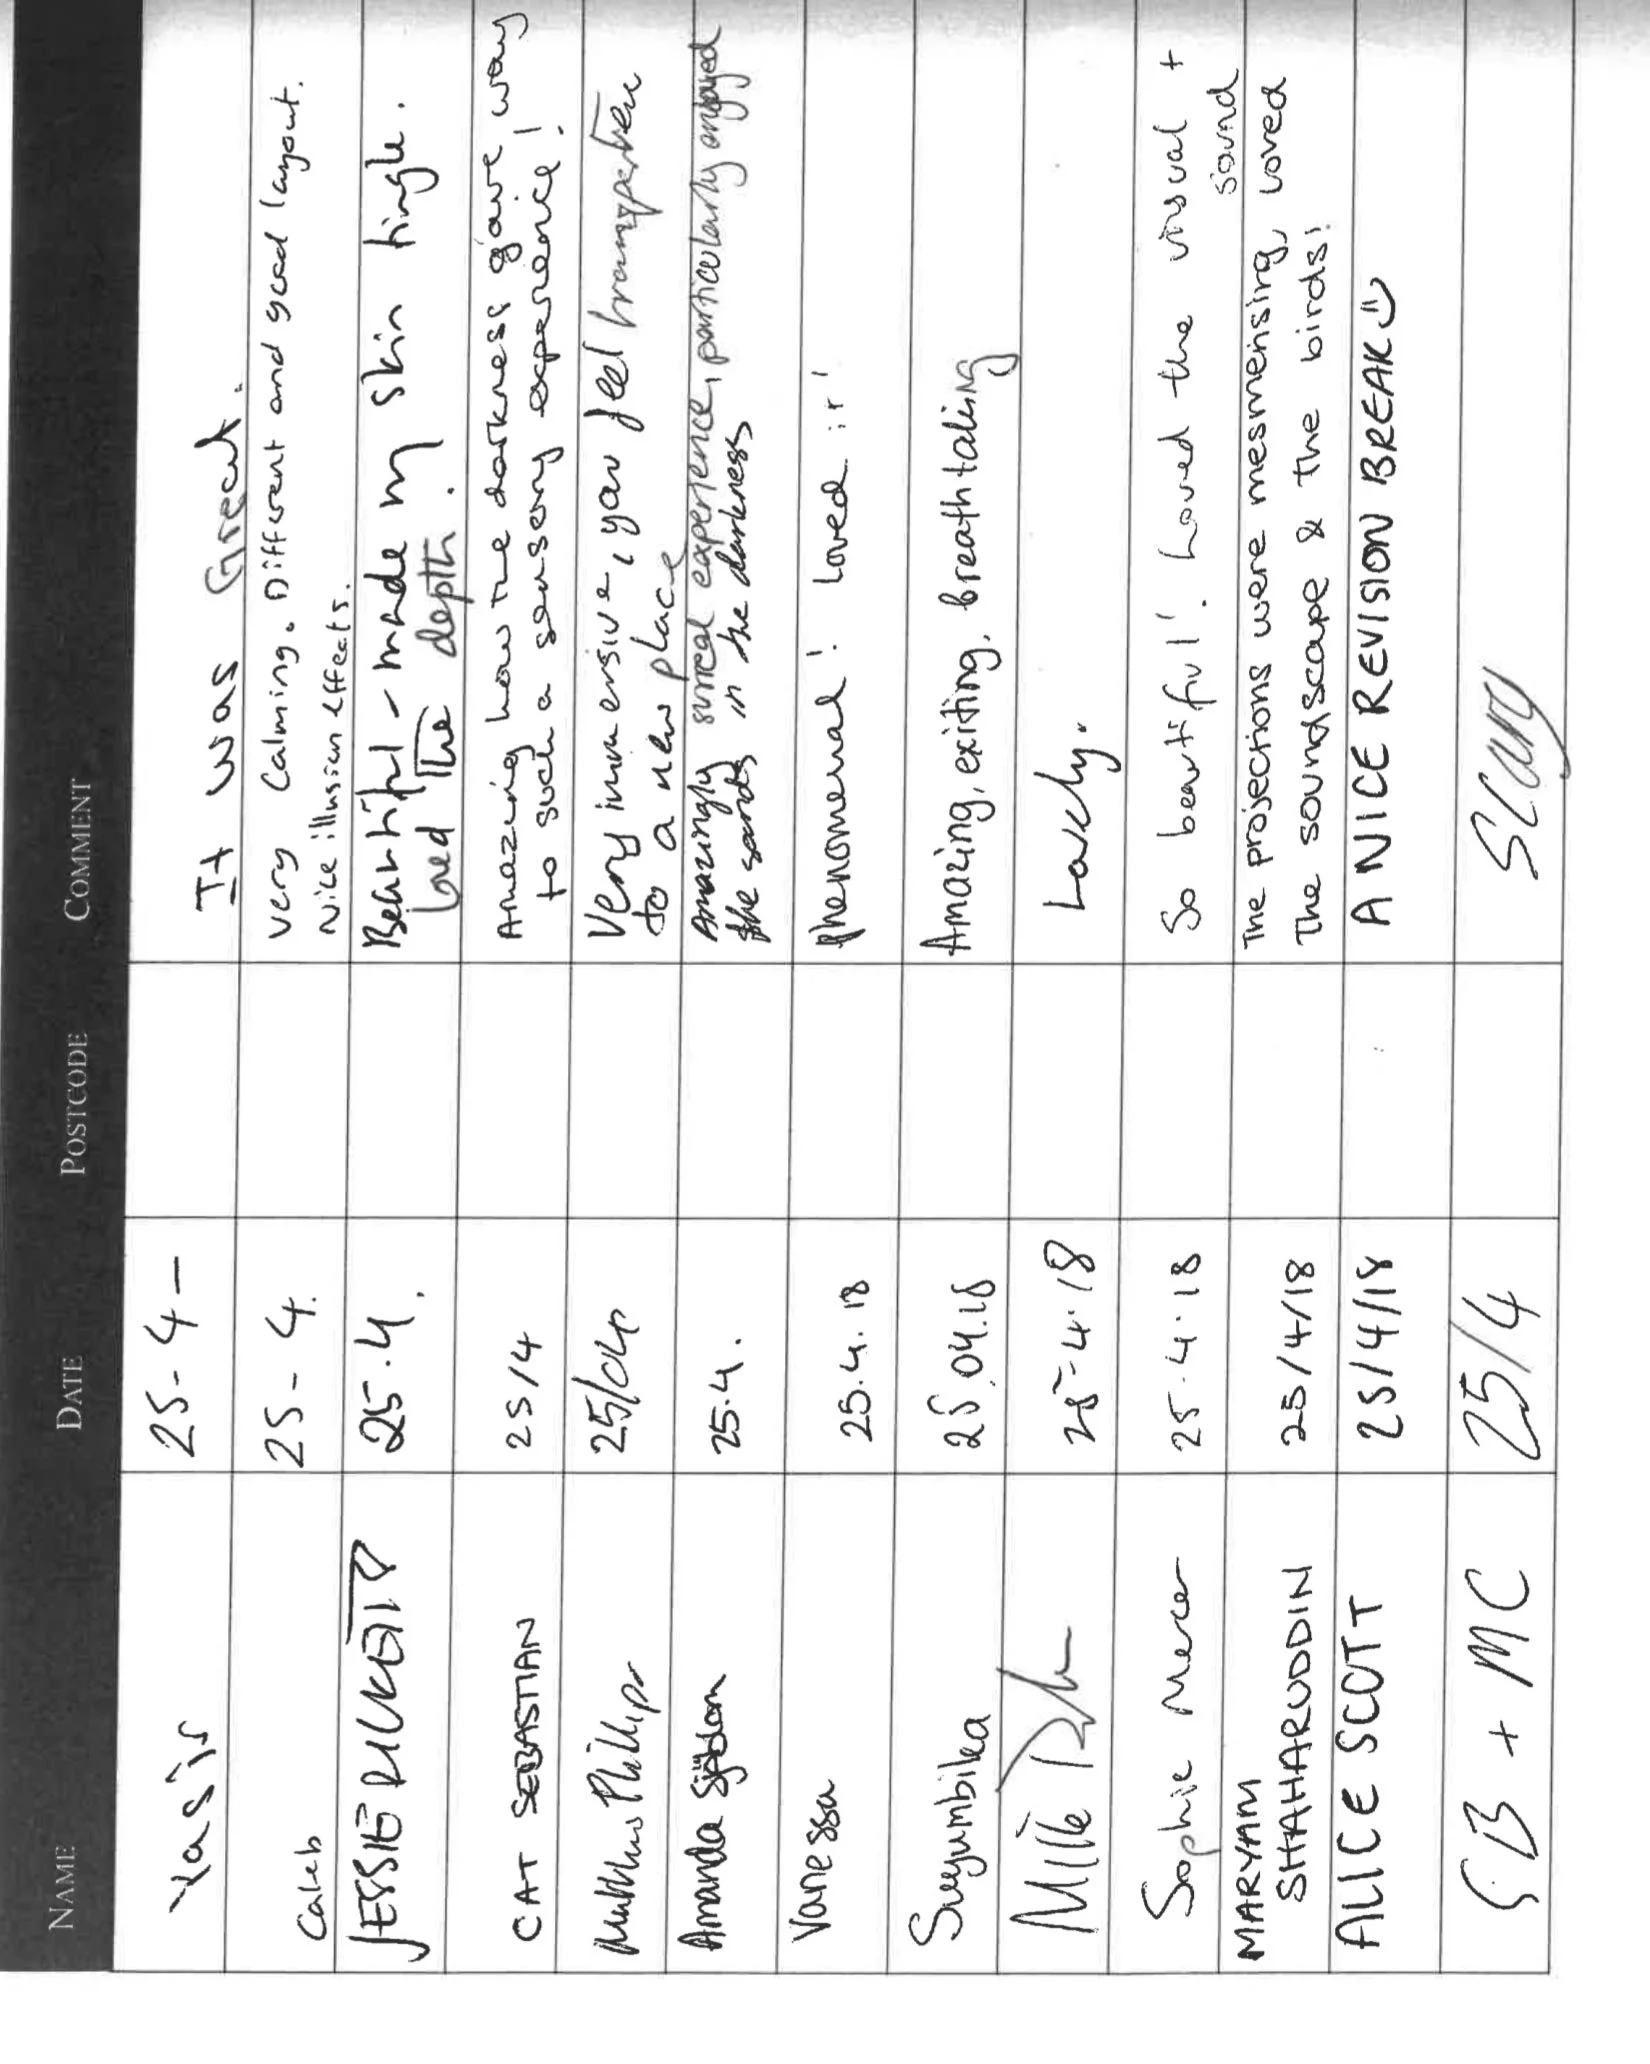 NAME DATE POSTCODE COMMENT
Yasir 25-4- It was Great.
Caleb 25-4. Very Calming. Different and good layout.
Nice illusion effects.
JESSIE RICKETTS 25.4. Beautiful - made my skin tingle.
Loved The depth.
CAT SEBASTIAN 25/4 Amazing how the darkness gave way
to such a sensory experience!
Phillips 25/04 Very immersive, you feel
to a new place
Amanda 25.4. Amazingly surreal experience, particularly enjoyed
the sands in the darkness
Vanessa 25.4.18 Phenomenal! Loved it!
Suyumbika 25.04.18 Amazing, exiting, breathtaking
25-4.18 Lovely.
Sophie Mercer 25.4.18 So beautiful! Loved the visual +
sound
MARYAM
SHAHARUDDIN 25/4/18 The projections were mesmerising, loved
the soundscape & the birds!
ALICE SCOTT 25/4/18 A NICE REVISION BREAK
SB + MC 25/4 Scary